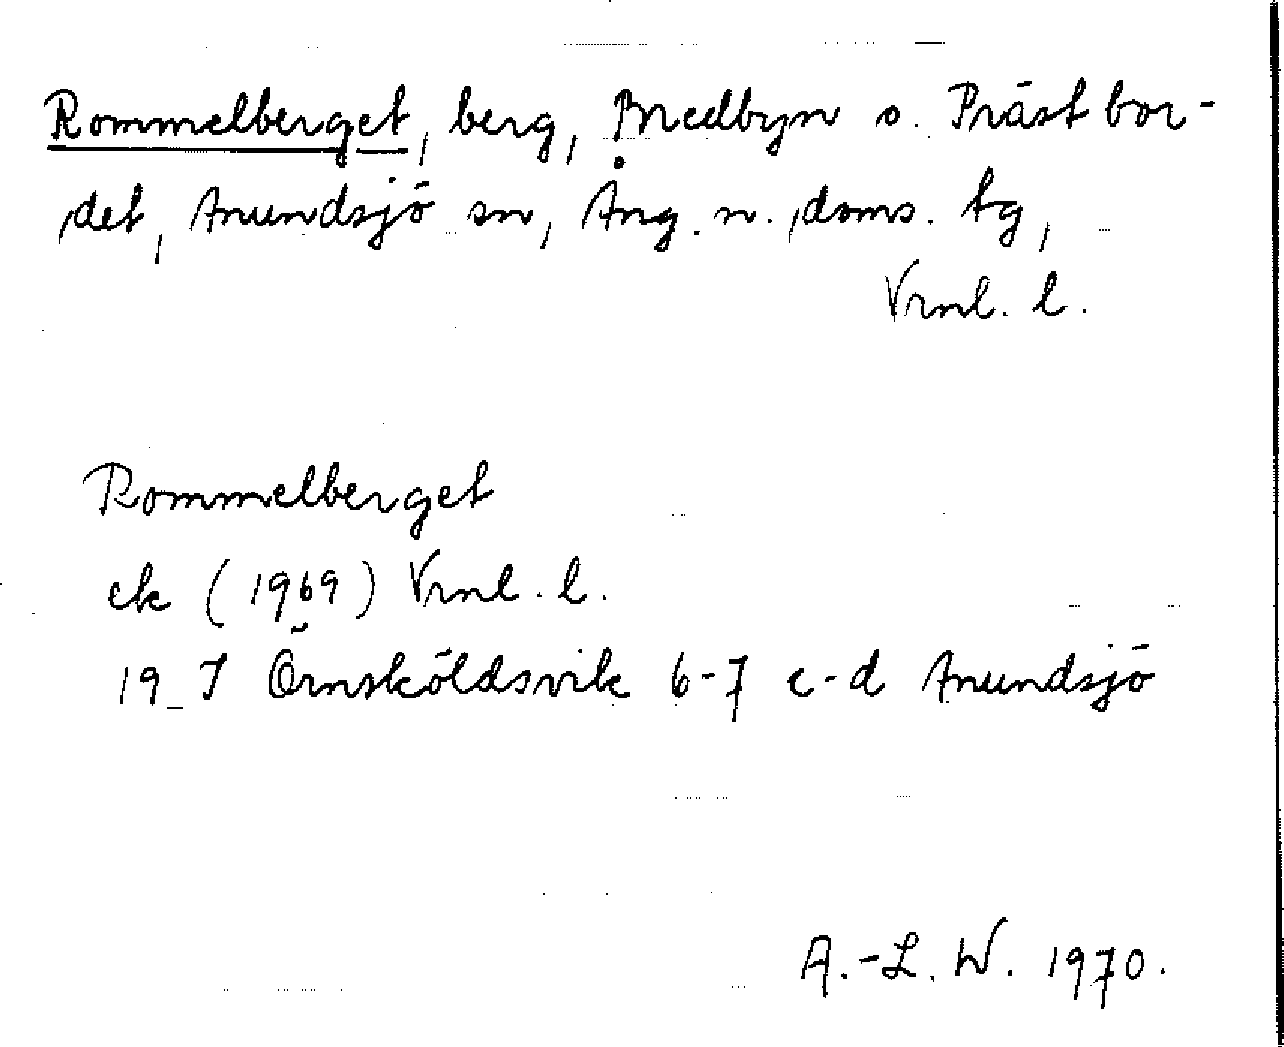 Rommelberget, berg, Bredbyn o. Prästbor-
det, Anundsjö sn, Ång. n. doms. tg,
Vrml. l.
Rommelberget
ek (1969) Vrml. l.
19 J Örnsköldsvik 6-7 c-d Anundsjö
A.-L. W. 1970.